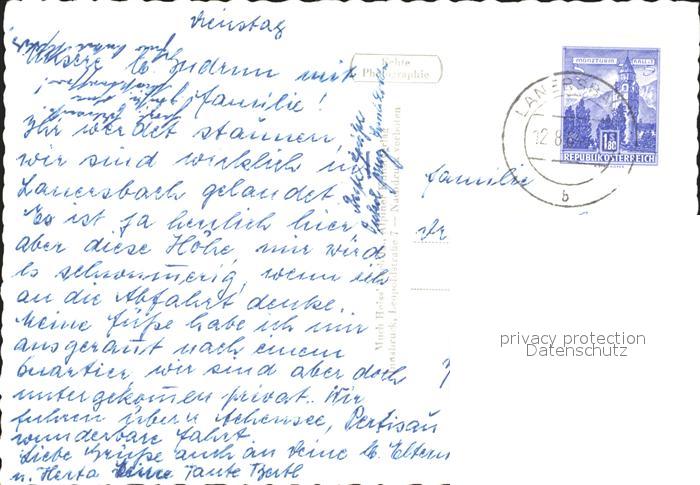 Dienstag
Unsere lb. Gudrun mit
Familie!
Ihr werdet staunen,
wir sind wirklich in
Lanersbach gelandet.
Es ist ja herrlich hier
aber diese Höhe mir wird
es schwummerig, wenn ich
an die Abfahrt denke.
Meine Füße habe ich mir
ausgerannt nach einem
Quartier, wir sind aber doch
untergekommen privat. Wir
fuhren übern Achensee, Pertisau
wunderbare Fahrt.
Liebe Grüße auch an Deine lb. Eltern
u. Herta Deine Tante Bertl
Echte
Photographie
Innsbruck, Leopoldstraße 7 — Nachdruck verboten
Familie
MÜNZTURM HALL I. T.
S 1.80
REPUBLIK ÖSTERREICH
LANERSBACH
12.8.
b
privacy protection
Datenschutz